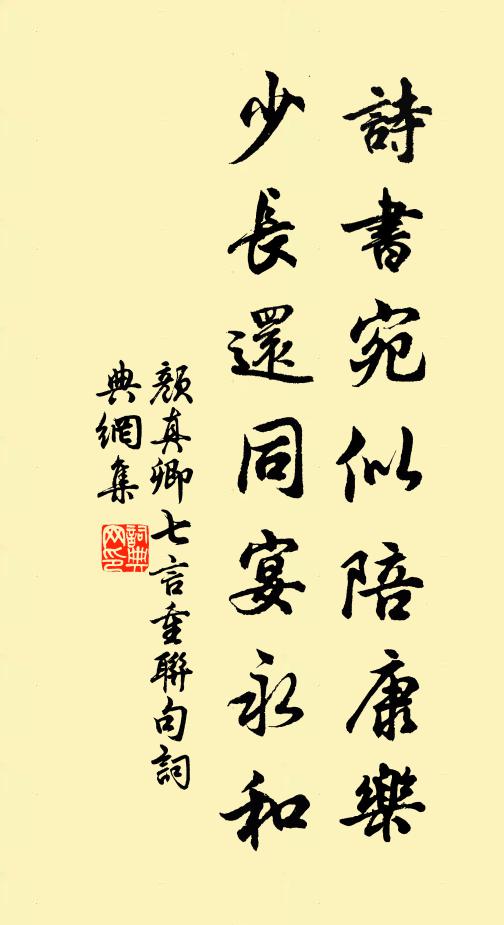 詩書宛似陪康樂
少長還同宴永和
顏真卿七言重聯句詞
典網集
詞典
网印